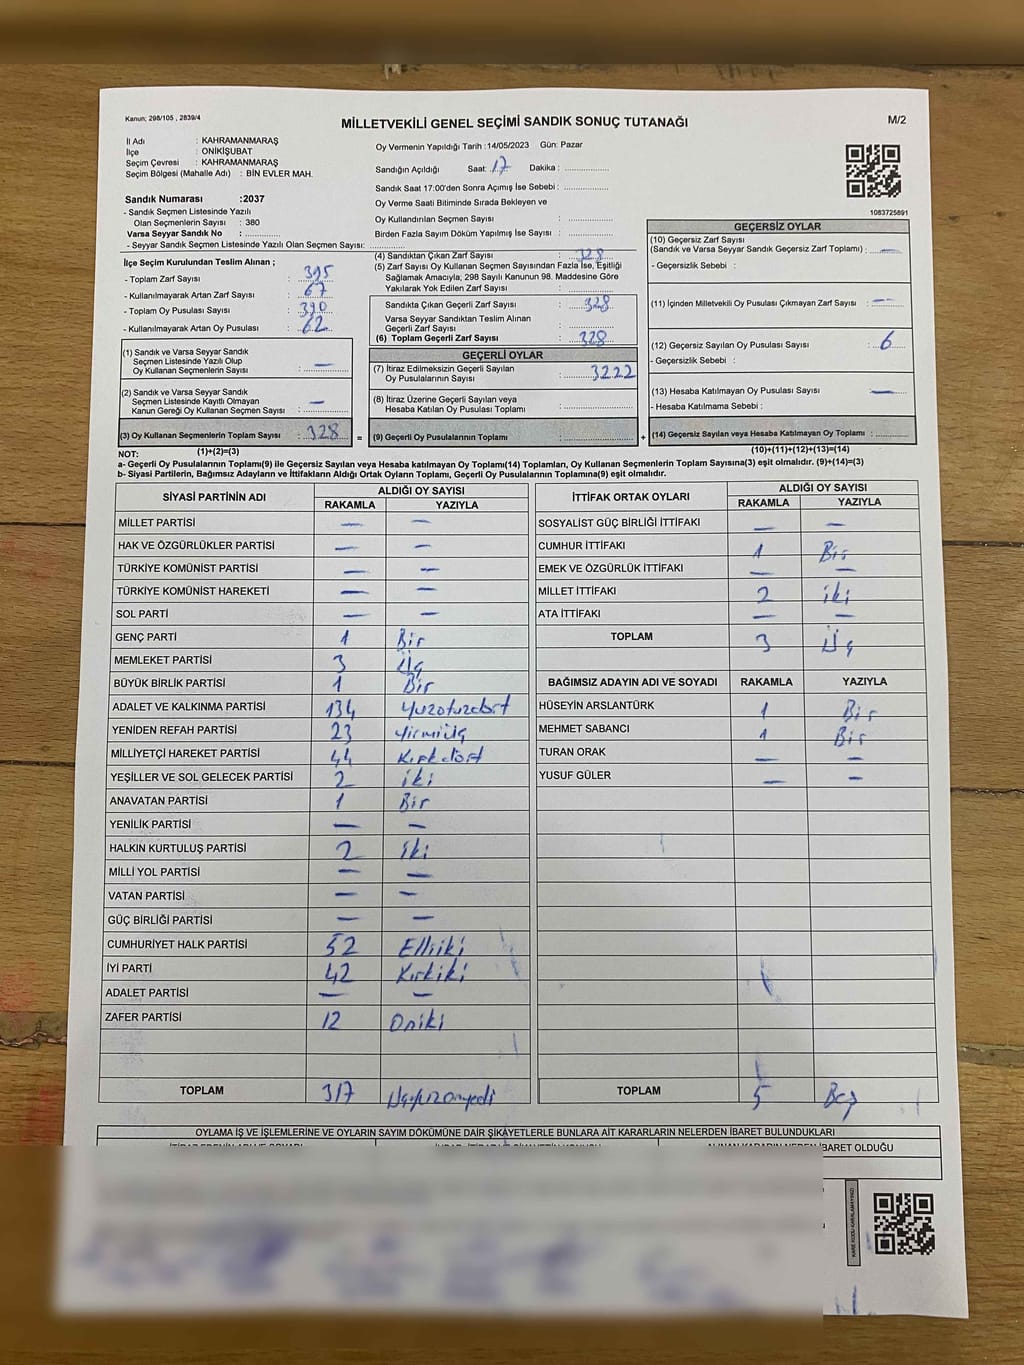 Kanun; 298/105 , 2839/4
MİLLETVEKİLİ GENEL SEÇİMİ SANDIK SONUÇ TUTANAĞI
M/2
İl Adı : KAHRAMANMARAŞ
İlçe : ONİKİŞUBAT
Seçim Çevresi : KAHRAMANMARAŞ
Seçim Bölgesi (Mahalle Adı) : BİN EVLER MAH.
Sandık Numarası :2037
- Sandık Seçmen Listesinde Yazılı
Olan Seçmenlerin Sayısı : 380
Varsa Seyyar Sandık No :
- Seyyar Sandık Seçmen Listesinde Yazılı Olan Seçmen Sayısı:
Oy Vermenin Yapıldığı Tarih :14/05/2023 Gün: Pazar
Sandığın Açıldığı Saat: 17 Dakika :
Sandık Saat 17:00'den Sonra Açımış İse Sebebi :
Oy Verme Saati Bitiminde Sırada Bekleyen ve
Oy Kullandırılan Seçmen Sayısı :
Birden Fazla Sayım Döküm Yapılmış İse Sayısı :
1083725891
İlçe Seçim Kurulundan Teslim Alınan ;
- Toplam Zarf Sayısı : 395
- Kullanılmayarak Artan Zarf Sayısı : 67
- Toplam Oy Pusulası Sayısı : 390
- Kullanılmayarak Artan Oy Pusulası : 62
(1) Sandık ve Varsa Seyyar Sandık
Seçmen Listesinde Yazılı Olup
Oy Kullanan Seçmenlerin Sayısı : —
(2) Sandık ve Varsa Seyyar Sandık
Seçmen Listesinde Kayıtlı Olmayan
Kanun Gereği Oy Kullanan Seçmen Sayısı : —
(3) Oy Kullanan Seçmenlerin Toplam Sayısı : 328 =
(4) Sandıktan Çıkan Zarf Sayısı : 328
(5) Zarf Sayısı Oy Kullanan Seçmen Sayısından Fazla İse, Eşitliği
Sağlamak Amacıyla; 298 Sayılı Kanunun 98. Maddesine Göre
Yakılarak Yok Edilen Zarf Sayısı :
Sandıkta Çıkan Geçerli Zarf Sayısı : 328
Varsa Seyyar Sandıktan Teslim Alınan
Geçerli Zarf Sayısı :
(6) Toplam Geçerli Zarf Sayısı : 328
GEÇERLİ OYLAR
(7) İtiraz Edilmeksizin Geçerli Sayılan
Oy Pusulalarının Sayısı : 3222
(8) İtiraz Üzerine Geçerli Sayılan veya
Hesaba Katılan Oy Pusulası Toplamı :
(9) Geçerli Oy Pusulalarının Toplamı : +
GEÇERSİZ OYLAR
(10) Geçersiz Zarf Sayısı
(Sandık ve Varsa Seyyar Sandık Geçersiz Zarf Toplamı) : —
- Geçersizlik Sebebi :
(11) İçinden Milletvekili Oy Pusulası Çıkmayan Zarf Sayısı : —
(12) Geçersiz Sayılan Oy Pusulası Sayısı : 6
- Geçersizlik Sebebi :
(13) Hesaba Katılmayan Oy Pusulası Sayısı : —
- Hesaba Katılmama Sebebi :
(14) Geçersiz Sayılan veya Hesaba Katılmayan Oy Toplamı :
NOT: (1)+(2)=(3) (10)+(11)+(12)+(13)=(14)
a- Geçerli Oy Pusulalarının Toplamı(9) ile Geçersiz Sayılan veya Hesaba katılmayan Oy Toplamı(14) Toplamları, Oy Kullanan Seçmenlerin Toplam Sayısına(3) eşit olmalıdır. (9)+(14)=(3)
b- Siyasi Partilerin, Bağımsız Adayların ve İttifakların Aldığı Ortak Oyların Toplamı, Geçerli Oy Pusulalarının Toplamına(9) eşit olmalıdır.
SİYASİ PARTİNİN ADI ALDIĞI OY SAYISI
RAKAMLA YAZIYLA
MİLLET PARTİSİ — —
HAK VE ÖZGÜRLÜKLER PARTİSİ — —
TÜRKİYE KOMÜNİST PARTİSİ — —
TÜRKİYE KOMÜNİST HAREKETİ — —
SOL PARTİ — —
GENÇ PARTİ 1 Bir
MEMLEKET PARTİSİ 3 Üç
BÜYÜK BİRLİK PARTİSİ 1 Bir
ADALET VE KALKINMA PARTİSİ 134 Yuzotuzdort
YENİDEN REFAH PARTİSİ 23 Yirmiüç
MİLLİYETÇİ HAREKET PARTİSİ 44 Kırkdört
YEŞİLLER VE SOL GELECEK PARTİSİ 2 iki
ANAVATAN PARTİSİ 1 Bir
YENİLİK PARTİSİ — —
HALKIN KURTULUŞ PARTİSİ 2 iki
MİLLİ YOL PARTİSİ — —
VATAN PARTİSİ — —
GÜÇ BİRLİĞİ PARTİSİ — —
CUMHURİYET HALK PARTİSİ 52 Elliiki
İYİ PARTİ 42 Kırkiki
ADALET PARTİSİ — —
ZAFER PARTİSİ 12 Oniki
TOPLAM 317 Üçyüzonyedi
İTTİFAK ORTAK OYLARI ALDIĞI OY SAYISI
RAKAMLA YAZIYLA
SOSYALİST GÜÇ BİRLİĞİ İTTİFAKI — —
CUMHUR İTTİFAKI 1 Bir
EMEK VE ÖZGÜRLÜK İTTİFAKI — —
MİLLET İTTİFAKI 2 iki
ATA İTTİFAKI — —
TOPLAM 3 Üç
BAĞIMSIZ ADAYIN ADI VE SOYADI RAKAMLA YAZIYLA
HÜSEYİN ARSLANTÜRK 1 Bir
MEHMET SABANCI 1 Bir
TURAN ORAK — —
YUSUF GÜLER — —
TOPLAM 5 Beş
OYLAMA İŞ VE İŞLEMLERİNE VE OYLARIN SAYIM DÖKÜMÜNE DAİR ŞİKAYETLERLE BUNLARA AİT KARARLARIN NELERDEN İBARET BULUNDUKLARI
ALINAN KARARIN NEDEN İBARET OLDUĞU
KARE KODU KARALAMAYINIZ!